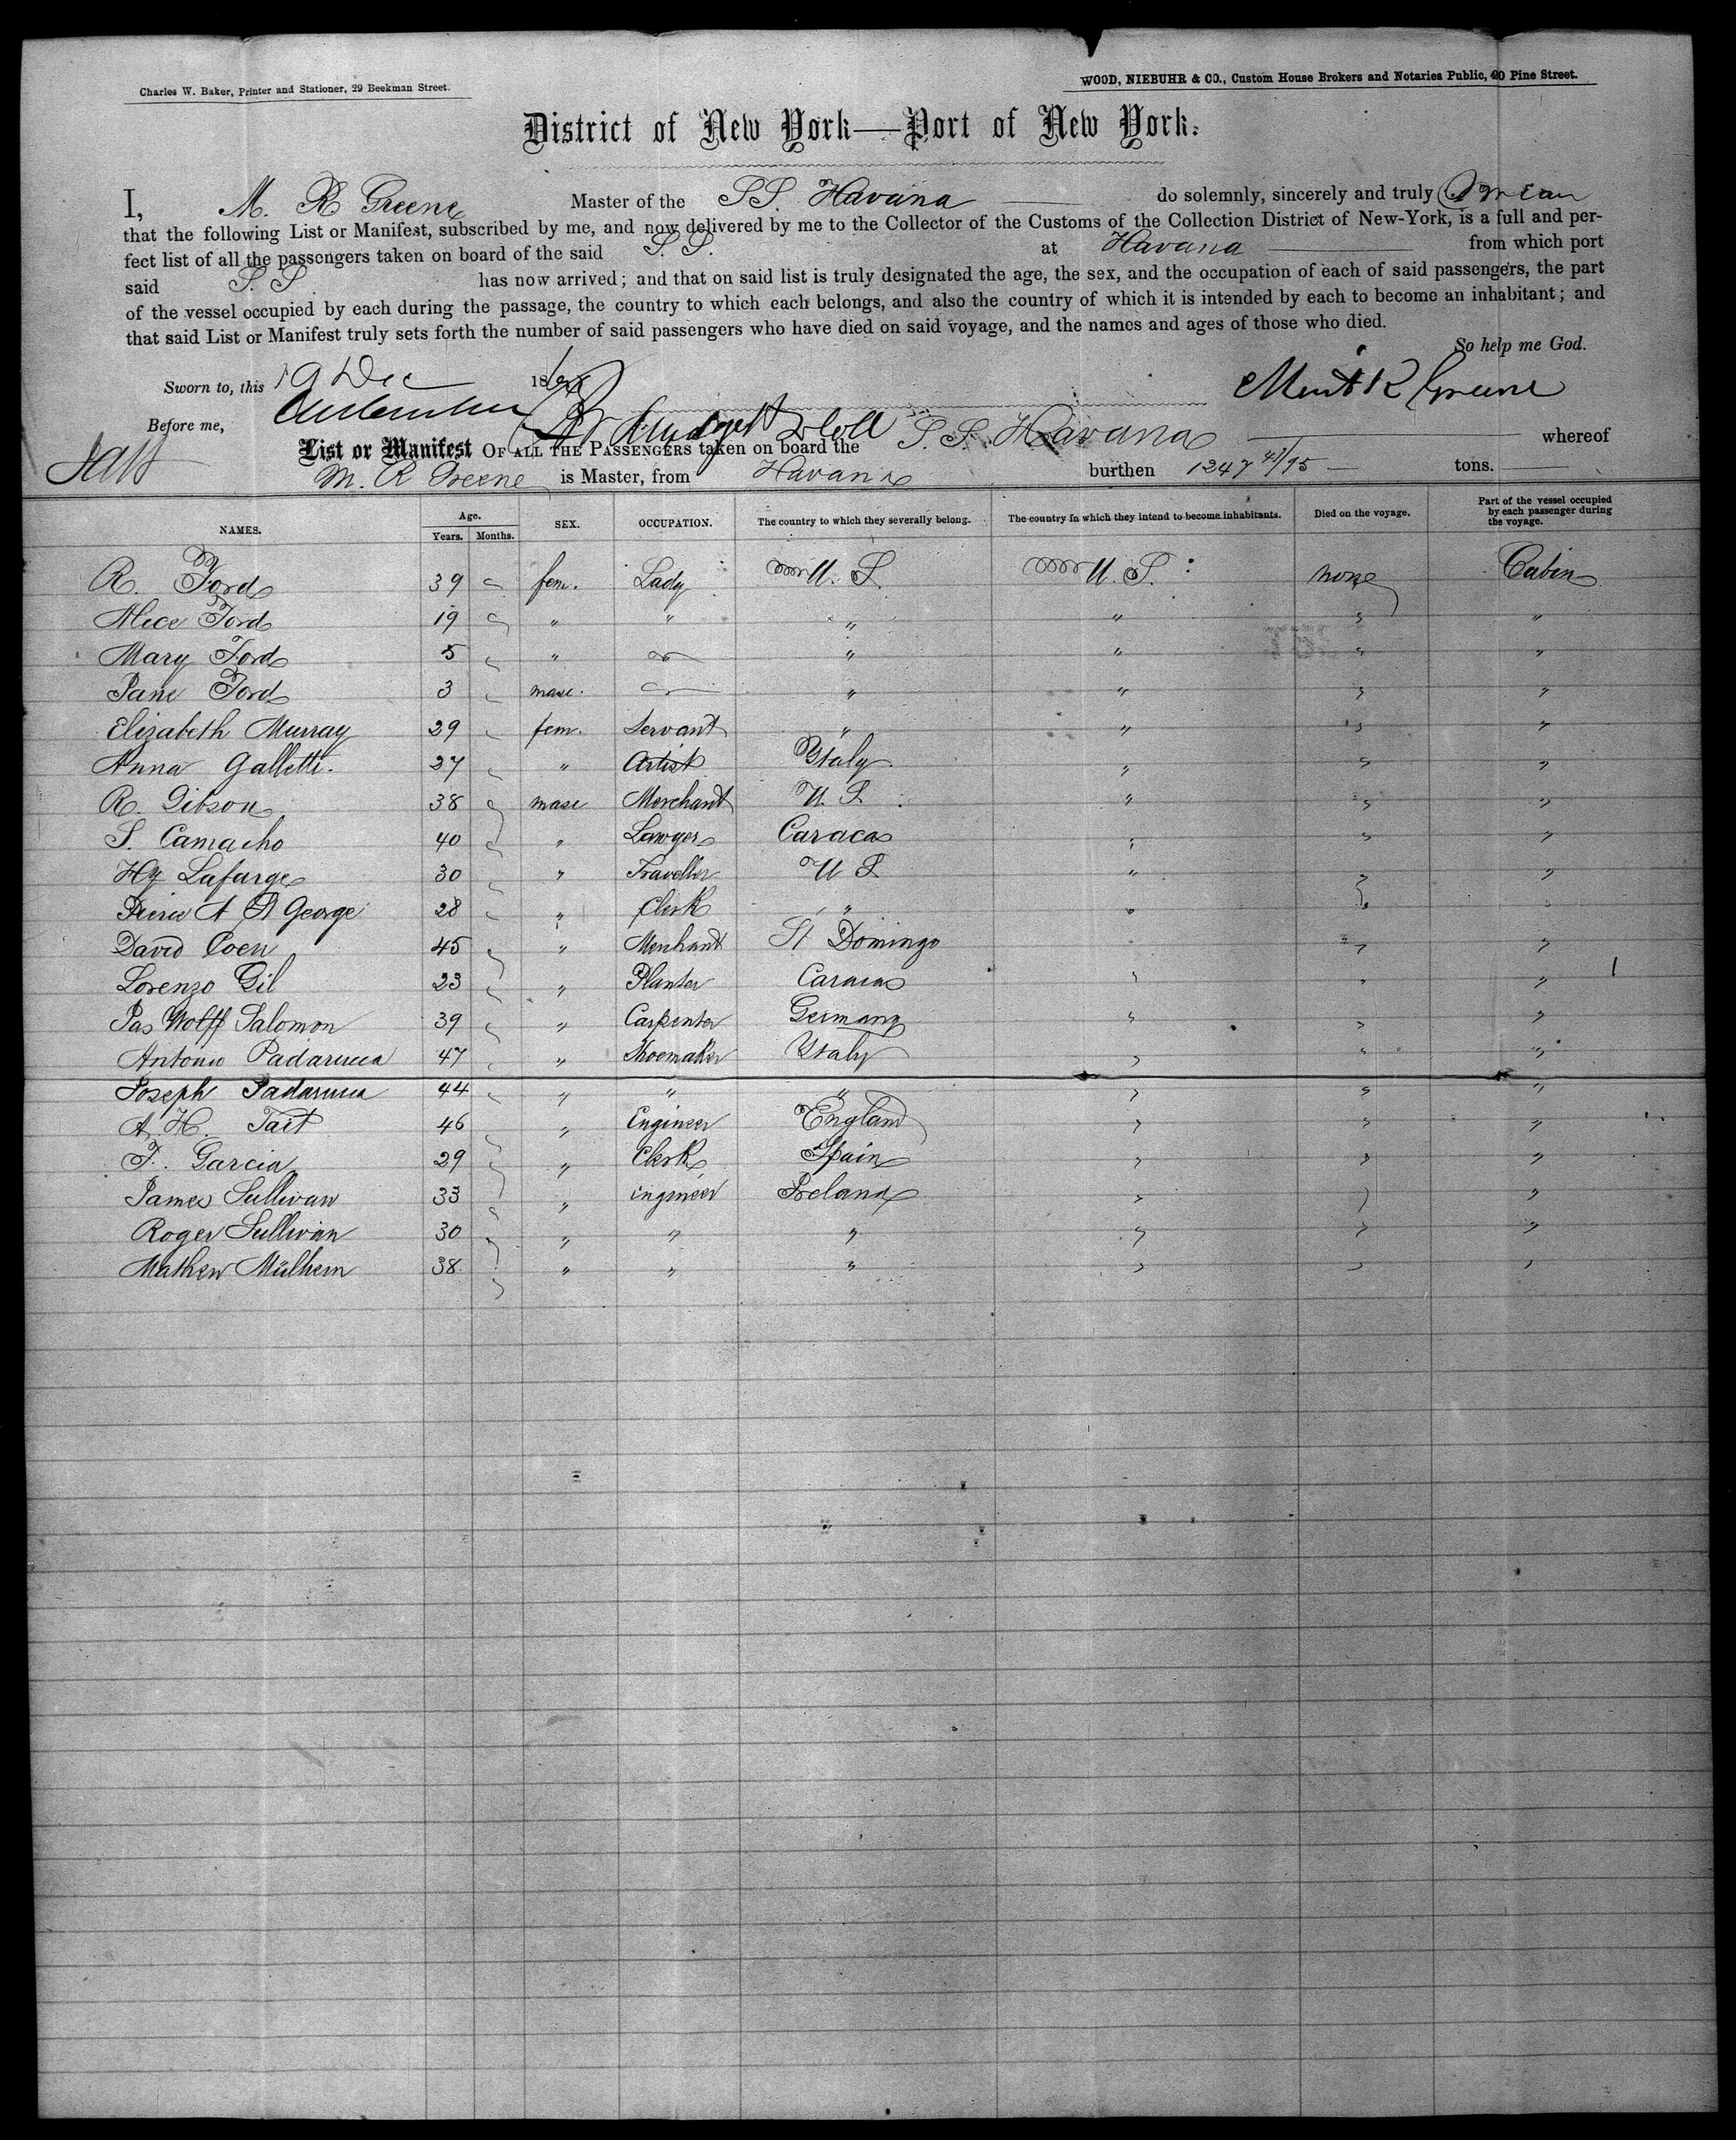 Charles W. Baker, Printer and Stationer, 29 Beekman Street.
WOOD, NIEBUHR & CO., Custom House Brokers and Notaries Public, 20 Pine Street.
District of New York—Port of New York.
I, M. R Greene Master of the SS. Havana do solemnly, sincerely and truly
that the following List or Manifest, subscribed by me, and now delivered by me to the Collector of the Customs of the Collection District of New-York, is a full and per-
fect list of all the passengers taken on board of the said S. S. at Havana from which port
said S. S has now arrived; and that on said list is truly designated the age, the sex, and the occupation of each of said passengers, the part
of the vessel occupied by each during the passage, the country to which each belongs, and also the country of which it is intended by each to become an inhabitant; and
that said List or Manifest truly sets forth the number of said passengers who have died on said voyage, and the names and ages of those who died.
So help me God.
Sworn to, this 19 Dec 186 R Greene
Before me,
List or Manifest OF ALL THE PASSENGERS taken on board the S. S. Havana whereof
M. R Greene is Master, from Havana burthen 1247 /95 tons.
NAMES. Age. Years. Months. SEX. OCCUPATION. The country to which they severally belong. The country in which they intend to become inhabitants. Died on the voyage. Part of the vessel occupied by each passenger during the voyage.
R. Ford 39 fem. Lady U. S. U. S. none Cabin
Alice Ford 19 " " " " " "
Mary Ford 5 " " " " "
Jane Ford 3 masc. " " " "
Elizabeth Murray 29 fem. Servant " " " "
Anna Galletti. 27 " Artist Italy " " "
R. Gibson 38 masc Merchant U. S. " " "
S. Camacho 40 " Lawyer Caracas " " "
Hy Lafarge 30 " Traveller U S. " " "
A George 28 " Clerk " " " "
David Coen 45 " Merchant St Domingo " " "
Lorenzo Gil 23 " Planter Caracas " " "
Jas Wolff Salomon 39 " Carpenter Germany " " "
Antonio 47 " Shoemaker Italy " " "
Joseph 44 " " " " " "
A. H. Tait 46 " Engineer England " " "
F. Garcia 29 " Clerk Spain " " "
James Sullivan 33 " Engineer Ireland " " "
Roger Sullivan 30 " " " " " "
Mathew Mulhern 38 " " " " " "